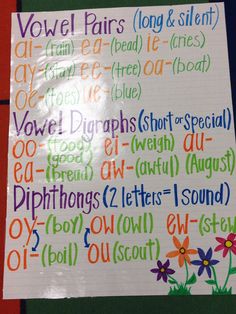 Vowel Pairs (long & silent)
ai-(rain) ea-(bead) ie-(cries)
ay-(stay) ee-(tree) oa-(boat)
oe-(toes) ue-(blue)
Vowel Digraphs (short or special)
oo-(food) ei-(weigh) au-
(good)
ea-(bread) aw-(awful) (August)
Diphthongs (2 letters=1 sound)
oy-(boy) ow(owl) ew-(stew
oi-(boil) ou(scout)